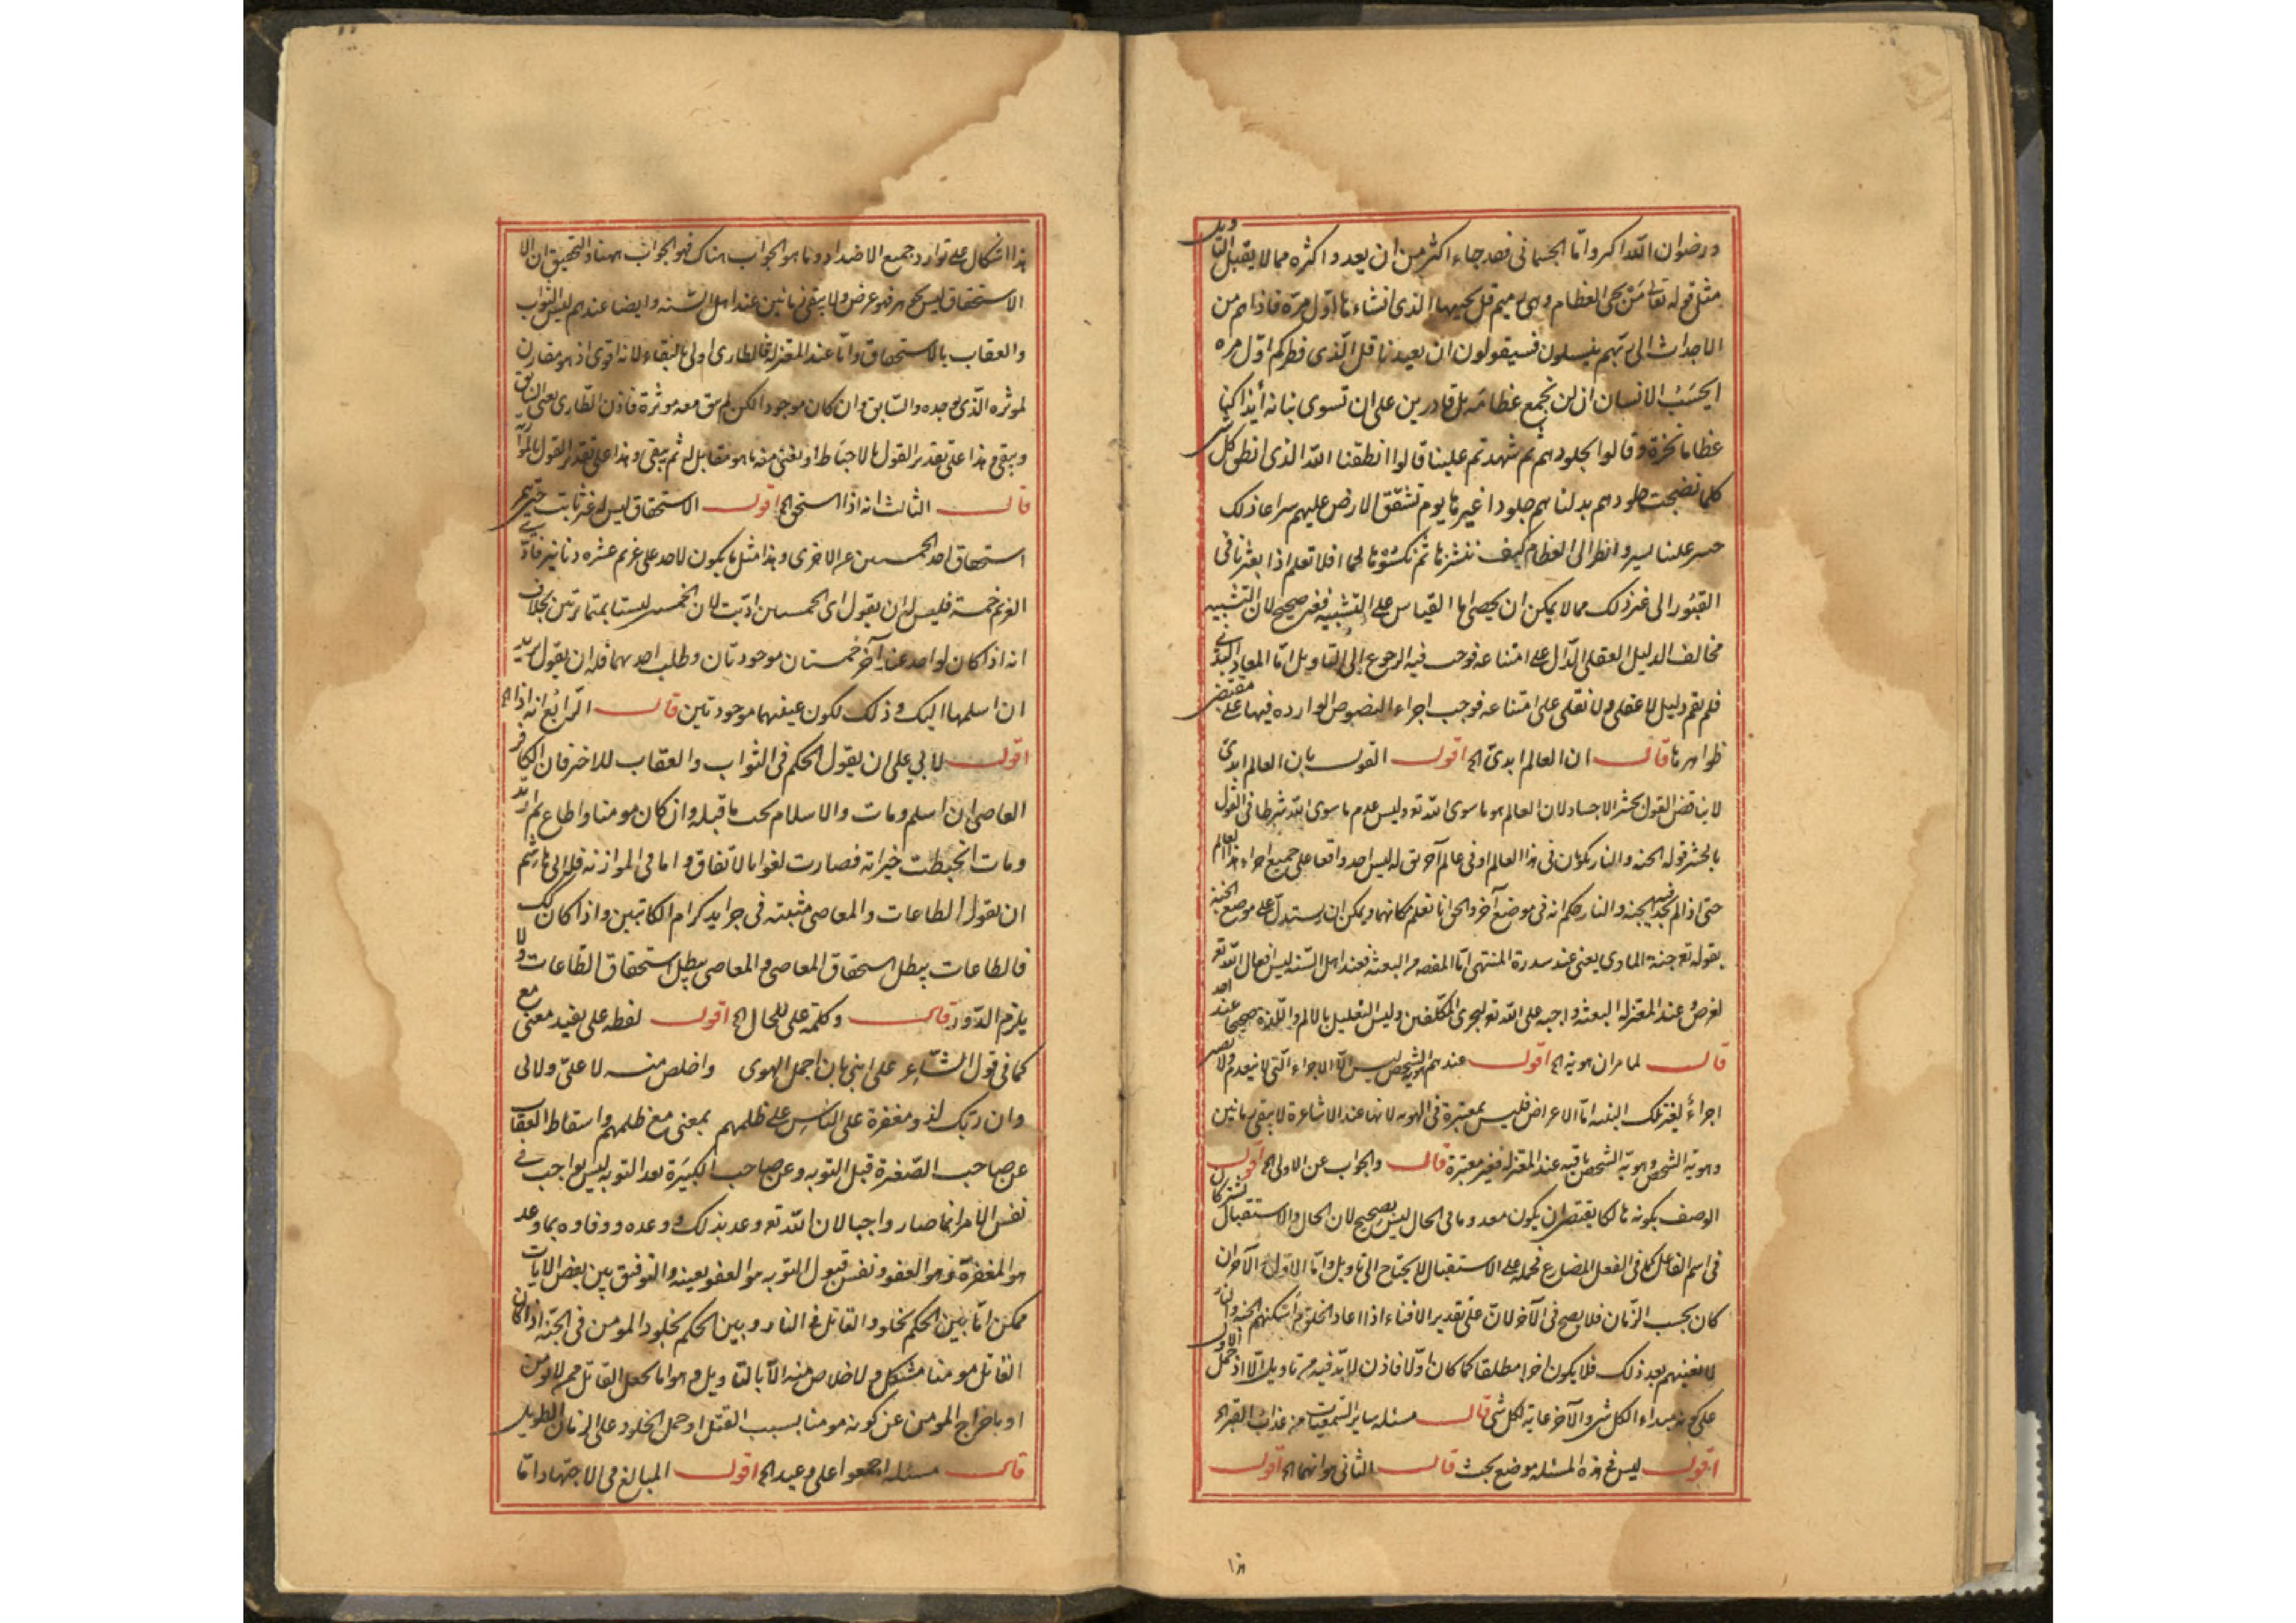 ورضوان الله اكبر واما الجسمانى فقد جاء اكثر من ان يعد واكثره مما لا يقبل التاويل
مثل قوله تعالى من يحى العظام وهى رميم قل يحييها الذى انشاءها اول مرة فاذا هم من
الاجداث الى ربهم ينسلون فسيقولون من يعيدنا قل الذى فطركم اول مره
ايحسب الانسان ان لن نجمع عظامه بلى قادرين على ان نسوى بنانه أئذا كنا
عظاما نخرة وقالوا لجلودهم لم شهدتم علينا قالوا انطقنا الله الذى انطق كل شى
كلما نضجت جلودهم بدلناهم جلودا غيرها يوم تشقق الارض عليهم سراعا ذلك
حشر علينا يسير وانظر الى العظام كيف ننشزها ثم نكسوها لحما افلا تعلم اذا بعثر ما فى
القبور الى غير ذلك مما لا يمكن ان يحصى اما القياس على التشبيه فغير صحيح لان التشبيه
مخالف الدليل العقلى الدال على امتناعه فوجب فيه الرجوع الى التاويل اما المعاد البدنى
فلم يقم دليل لا عقلى ولا نقلى على امتناعه فوجب اجراء النصوص الوارده فيها على مقتضى
ظواهرها قال ان العالم ابدى الخ اقول القول بان العالم ابدى
لا يناقض القول بحشر الاجساد لان العالم هو ما سوى الله تع وليس عدم ما سوى الله شرطا فى القول
بالحشر قوله الجنه والنار يكونان فى هذا العالم او فى عالم آخر لق له ليس احد واقفا على جميع اجزاء هذا العالم
حتى اذا لم يجد فيه الجنه والنار حكم انه فى موضع آخر والحق انا لا نعلم مكانهما ويمكن ان يستدل على موضع الجنة
بقوله تع جنة الماوى يعنى عند سدرة المنتهى اما المقصد من البعثه فعند اهل السنه ليس افعال الله تع
لغرض وعند المعتزله البعثه واجبه على الله تع ليجزى المكلفين وليس التعليل بالالم واللذة صحيحا عند احد
قال لما مر ان هويته الخ اقول عندهم هوية الشخص ليس الا الاجزاء التى لا ينعدم ولا تصير
اجزاء لغير تلك البنيه اما الاعراض فليس بمعتبرة فى الهويه لانها عند الاشاعرة لا يبقى زمانين
وهوية الشخص وهوية الشخص باقيه عند المعتزله فغير معتبرة قال والجواب عن الاولى الخ اقول
الوصف بكونه هالكا يقتضى ان يكون معدوما فى الحال ليس بصحيح لان الحال والاستقبال يشتركان
فى اسم الفاعل كما فى الفعل المضارع فحمله على الاستقبال لا يحتاج الى تاويل واما الاول والآخر ان
كان بحسب الزمان فلا يصح فى الآخر لان على تقدير الافناء اذا اعاد الخلق ثم اسكنهم الجنه والنار
لا يفنيهم بعد ذلك فلا يكون اخرا مطلقا كما كان اولا فاذن لابد فيه من تاويل الا اذ حمل الاول
على كونه مبداء لكل شى والآخر غاية لكل شى قال مسئله ساير السمعيات من عذاب القبر الخ
اقول ليس فى هذه المسئله موضع بحث قال الثانى هو انهما الخ اقول
هذا
هذا اشكال على توارد جميع الاضداد وما هو الجواب هناك فهو الجواب ههنا والتحقيق ان الا
الاستحقاق ليس بجوهر فهو عرض ولا يبقى زمانين عند اهل السنه وايضا عندهم ليس الثواب
والعقاب بالاستحقاق واما عند المعتزله فالطارى اولى بالبقاء لانه اقوى اذ هو مقارن
لموثره الذى يوجده والسابق وان كان موجودا لكن لم يبق معه موثرة فاذن الطارى يفنى السابق
ويبقى وهذا على تقدير القول بالاحباط او يفنى منه ما هو مقابل له ثم يبقى وهذا على تقدير القول بالموازنة
قال الثالث انه اذا استحق الخ اقول الاستحقاق ليس له غير ثابت حتى يميز
استحقاق احد الخمستين عن الاخرى وهذا مثل ما يكون لاحد على غريم عشره دنانير فادى
الغريم خمسة فليس له ان يقول اى الخمستين اديت لان الخمس ليستا بمتمايزتين بخلاف
انه اذا كان لواحد عند آخر خمستان موجودتان وطلب احدهما فله ان يقول
ان اسلمها اليك وذلك لكون عينهما موجودتين قال الرابع انه اذا الخ
اقول لابى على ان يقول الحكم فى الثواب والعقاب للاخر فان الكافر
العاصى ان اسلم ومات والاسلام يجب ما قبله وان كان مومنا واطاع ثم ارتد
ومات انحبطت خيراته فصارت لغوا بالاتفاق واما فى الموازنه فلابى هاشم
ان يقول الطاعات والمعاصى مثبته فى جرايد كرام الكاتبين واذا كان كك
فالطاعات يبطل استحقاق المعاصى والمعاصى يبطل استحقاق الطاعات ولا
يلزم الدور قال وكلمة على للحال الخ اقول لفظه على يفيد معنى مع
كما فى قول الشاعر على اننى بان اجمل الهوى واخلص منه لا على ولا لى
وان ربك لذو مغفرة على الناس على ظلمهم بمعنى مع ظلمهم واسقاط العقاب
عن صاحب الصغيرة قبل التوبه وعن صاحب الكبيرة بعد التوبه ليس بواجب فى
نفس الامر انما صار واجبا لان الله تع وعد بذلك ووعده ووفاوه بما وعد
هو المغفرة وهو العفو ونفس قبول التوبه هو العفو بعينه والتوفيق بين بعض الايات
ممكن اما بين الحكم بخلود القاتل فى النار وبين الحكم بخلود المومن فى الجنة اذا كان
القاتل مومنا مشكل ولا خلاص منه الا بالتاويل وهو اما بجعل القاتل غير المومن
او باخراج المومن عن كونه مومنا بسبب القتل او حمل الخلود على الزمان الطويل
قال مسئله اجمعوا على وعيد الخ اقول المبالغ فى الاجتهاد اما